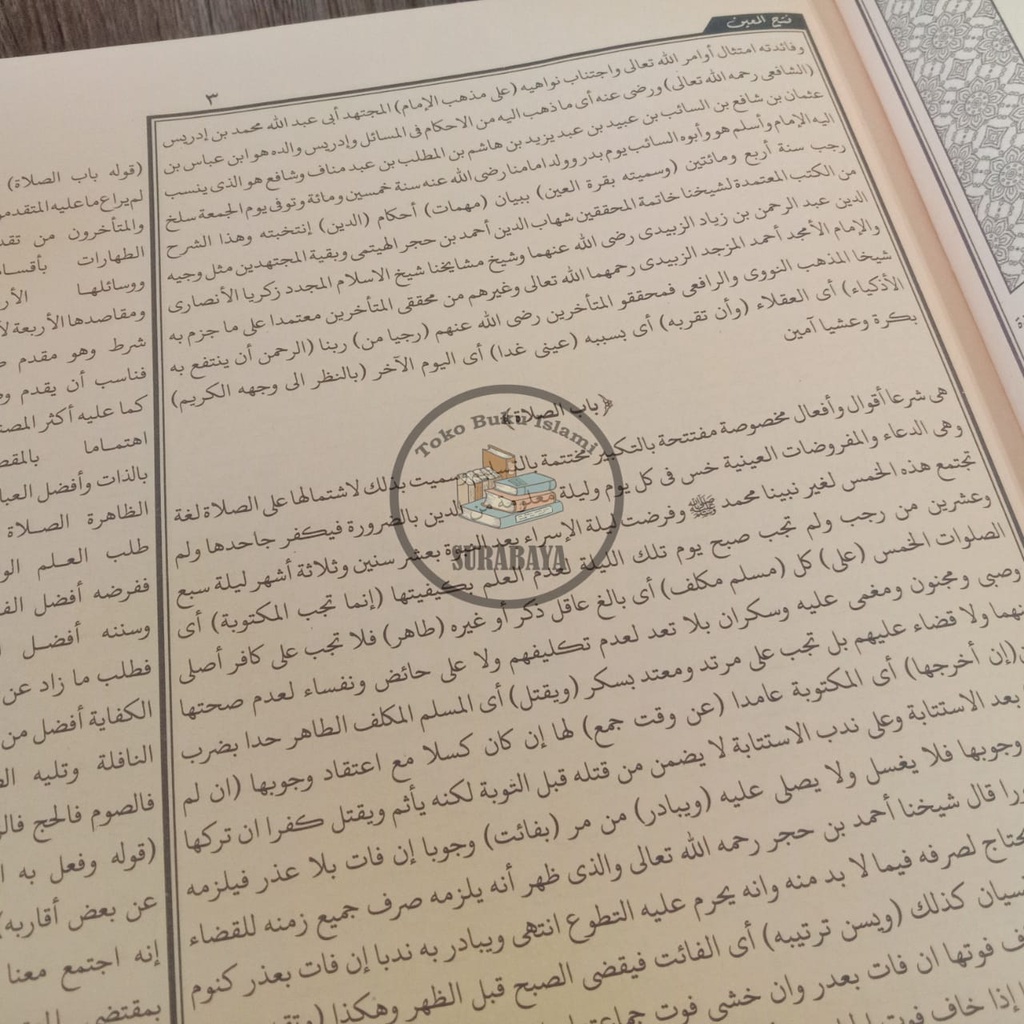 فتح المعين
٣
وفائدته امتثال أوامر الله تعالى واجتناب نواهيه (على مذهب الإمام) المجتهد أبى عبد الله محمد بن إدريس
(الشافعى رحمه الله تعالى) ورضى عنه أى ما ذهب اليه من الاحكام فى المسائل وإدريس والده هو ابن عباس بن
عثمان بن شافع بن السائب بن عبيد بن عبد يزيد بن هاشم بن المطلب بن عبد مناف وشافع هو الذى ينسب
اليه الإمام وأسلم هو وأبوه السائب يوم بدر وولد امامنا رضى الله عنه سنة خمسين ومائة وتوفى يوم الجمعة سلخ
رجب سنة أربع ومائتين (وسميته بقرة العين) ببيان (مهمات) أحكام (الدين) إنتخبته وهذا الشرح
من الكتب المعتمدة لشيخنا خاتمة المحققين شهاب الدين أحمد بن حجر الهيتمى وبقية المجتهدين مثل وجيه
الدين عبد الرحمن بن زياد الزبيدى رضى الله عنهما وشيخ مشايخنا شيخ الاسلام المجدد زكريا الأنصارى
والإمام الأمجد أحمد المزجد الزبيدى رحمهما الله تعالى وغيرهم من محققى المتأخرين معتمدا على ما جزم به
شيخا المذهب النووى والرافعى فمحققو المتأخرين رضى الله عنهم (رجيا من) ربنا (الرحمن أن ينتفع به
الأذكياء) أى العقلاء (وأن تقربه) أى بسببه (عينى غدا) أى اليوم الآخر (بالنظر الى وجهه الكريم)
بكرة وعشيا آمين
﴿باب الصلاة﴾
هى شرعا أقوال وأفعال مخصوصة مفتتحة بالتكبير مختتمة سميت بذلك لاشتمالها على الصلاة لغة
وهى الدعاء والمفروضات العينية خمس فى كل يوم وليلة معلومة الدين بالضرورة فيكفر جاحدها ولم
تجتمع هذه الخمس لغير نبينا محمد ﷺ وفرضت ليلة الإسراء بعد النبوة بعشر سنين وثلاثة أشهر ليلة سبع
وعشرين من رجب ولم تجب صبح يوم تلك الليلة لعدم العلم بكيفيتها (إنما تجب المكتوبة) أى
الصلوات الخمس (على) كل (مسلم مكلف) أى بالغ عاقل ذكر أو غيره (طاهر) فلا تجب على كافر أصلى
وصبى ومجنون ومغمى عليه وسكران بلا تعد لعدم تكليفهم ولا على حائض ونفساء لعدم صحتها
نهما ولا قضاء عليهم بل تجب على مرتد ومعتد بسكر (ويقتل) أى المسلم المكلف الطاهر حدا بضرب
(إن أخرجها) أى المكتوبة عامدا (عن وقت جمع) لها إن كان كسلا مع اعتقاد وجوبها (ان لم
بعد الاستتابة وعلى ندب الاستتابة لا يضمن من قتله قبل التوبة لكنه يأثم ويقتل كفرا ان تركها
وجوبها فلا يغسل ولا يصلى عليه (ويبادر) من مر (بفائت) وجوبا إن فات بلا عذر فيلزمه
ورا قال شيخنا أحمد بن حجر رحمه الله تعالى والذى ظهر أنه يلزمه صرف جميع زمنه للقضاء
حتاج لصرفه فيما لا بد منه وانه يحرم عليه التطوع انتهى ويبادر به ندبا إن فات بعذر كنوم
سيان كذلك (ويسن ترتيبه) أى الفائت فيقضى الصبح قبل الظهر وهكذا
ف فوتها ان فات بعذر وان خشى فوت
إذا خاف
(قوله باب الصلاة)
لم يراع ما عليه المتقدمو
والمتأخرون من تقد
الطهارات بأقسا
ووسائلها الأر
ومقاصدها الأربعة لأ
شرط وهو مقدم ط
فناسب أن يقدم وه
كما عليه أكثر المصن
اهتماما بالمقص
بالذات وأفضل العبا
الظاهرة الصلاة
طلب العلم الو
ففرضه أفضل الف
وسننه أفضل
فطلب ما زاد عن
الكفاية أفضل من
النافلة وتليه الص
فالصوم فالحج فالز
(قوله وفعل به ا
عن بعض أقاربه)
إنه اجتمع معنا
بمقتضى
Toko Buku Islami
SURABAYA